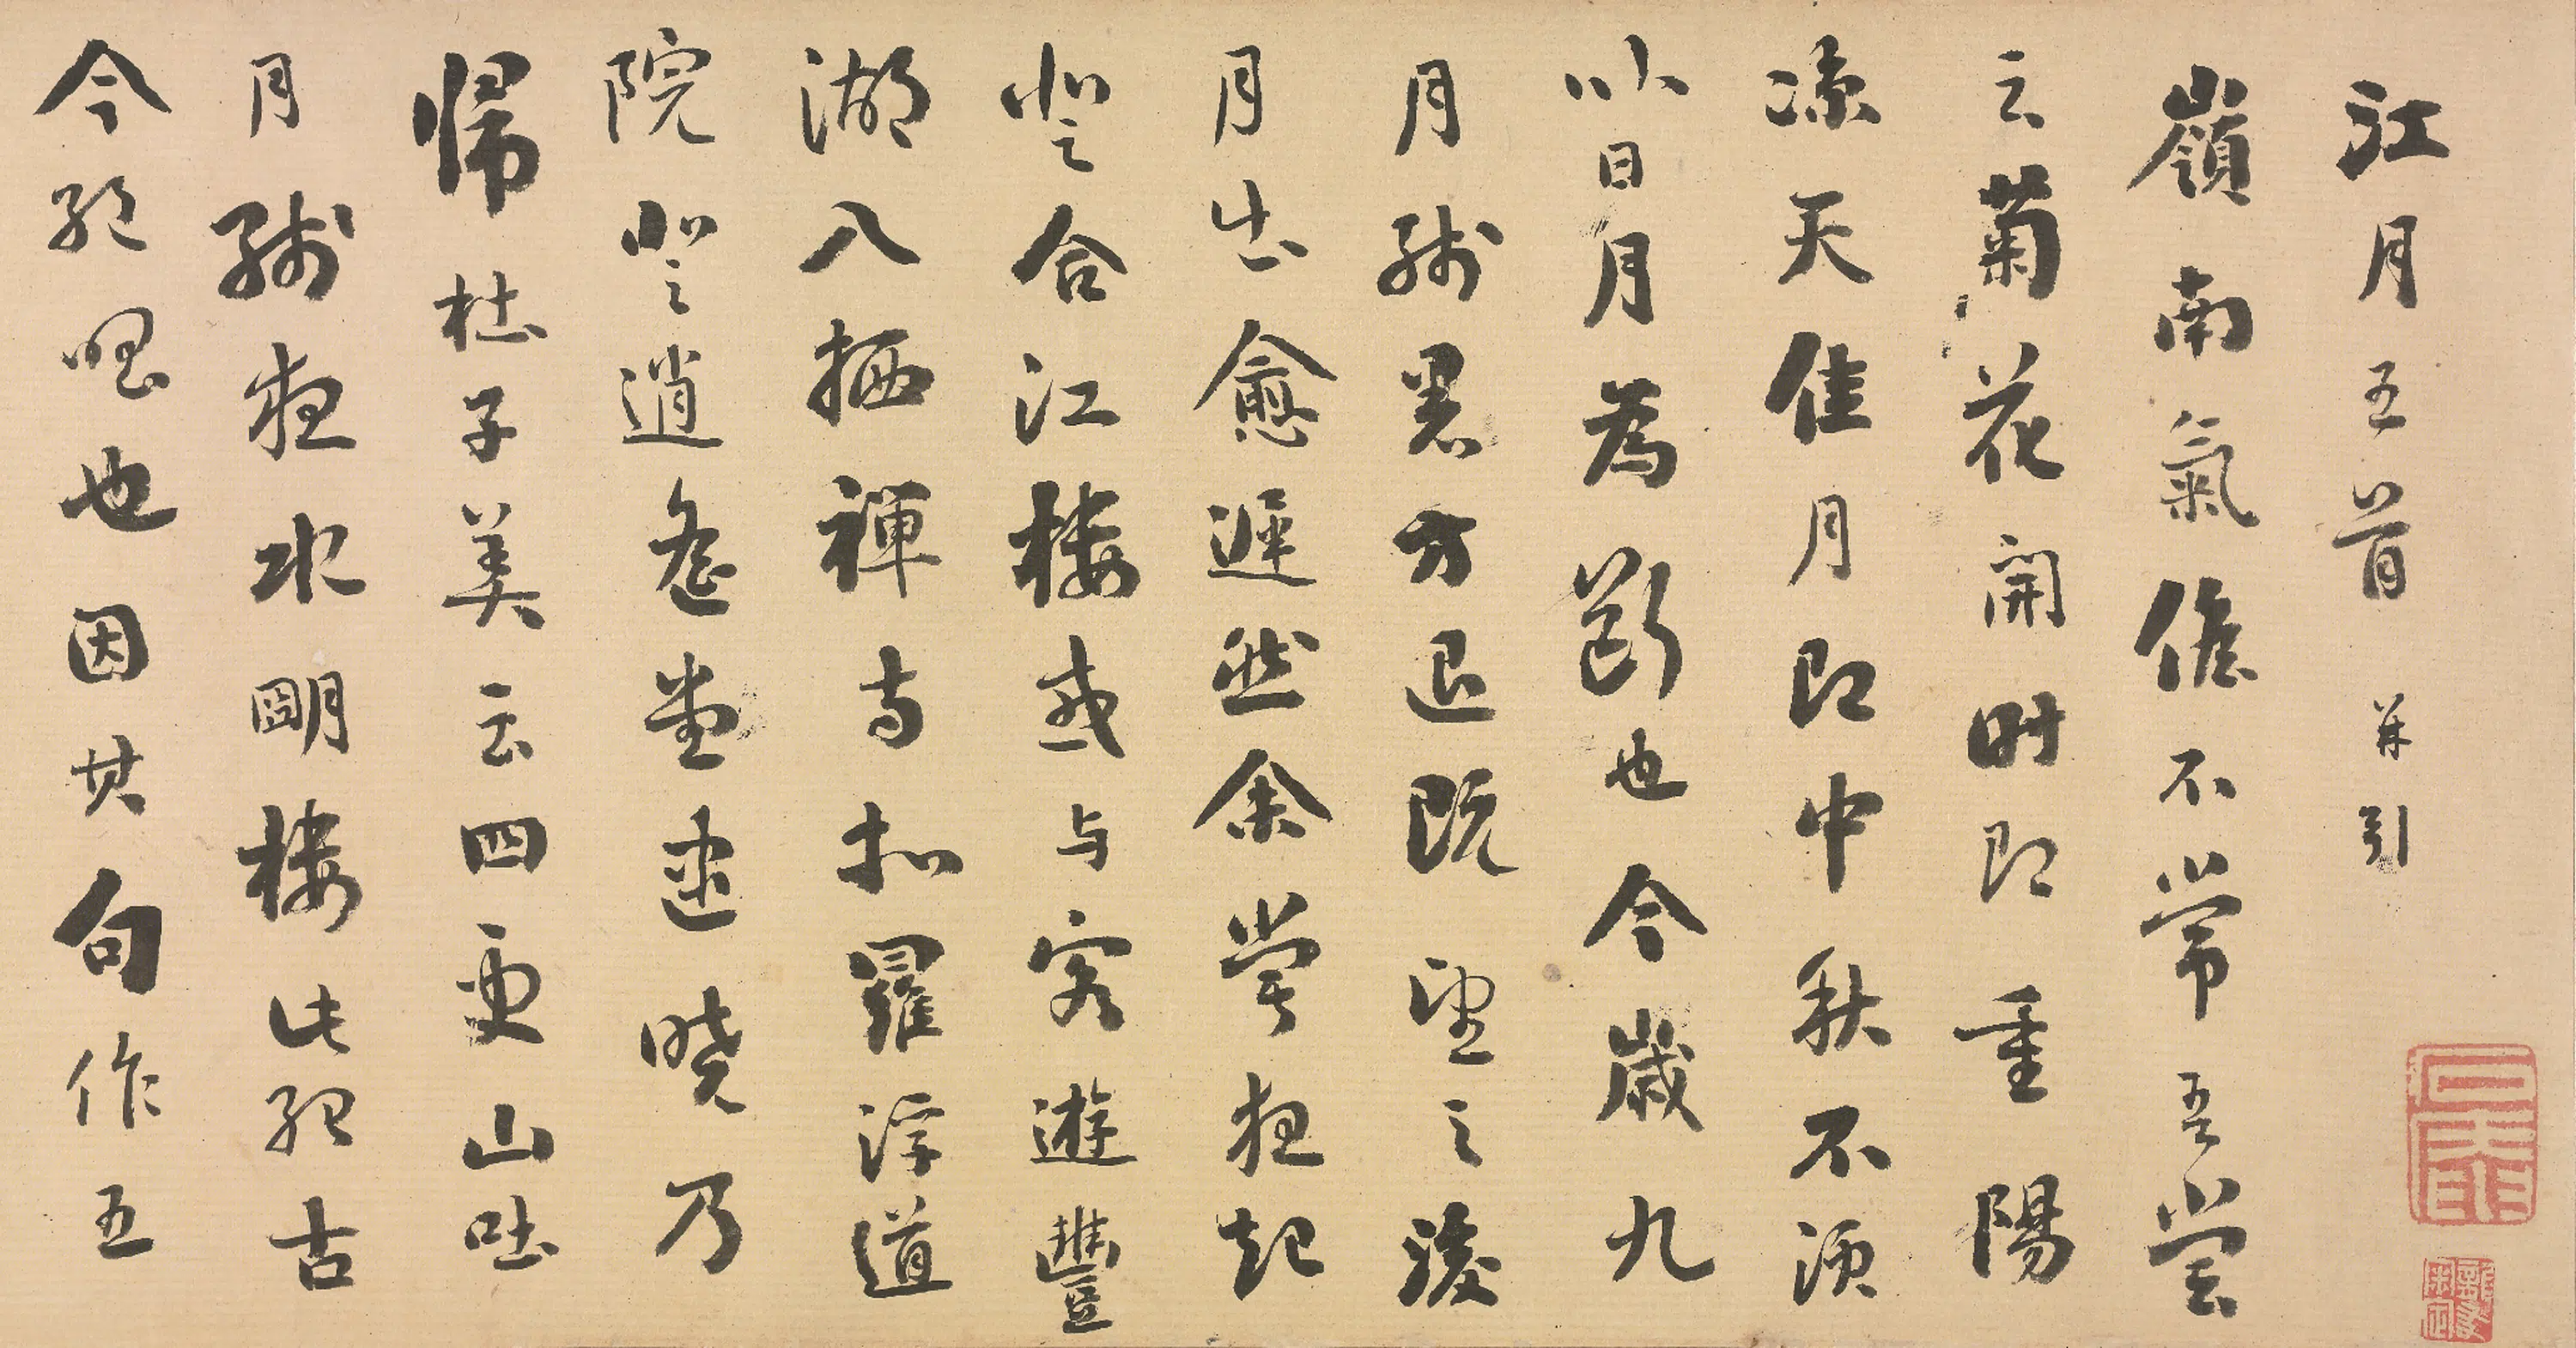 江月五首 并引
嶺南氣候不常吾嘗
云菊花開時即重陽
涼天佳月即中秋不須
以日月為斷也今歲九
月殘暑方退既望之後
月出愈遲然余嘗夜起
登合江樓或与客遊豐
湖入栖禪寺扣羅浮道
院登逍遙堂逮曉乃
歸杜子美云四更山吐
月殘夜水明樓此殆古
今絕唱也因其句作五